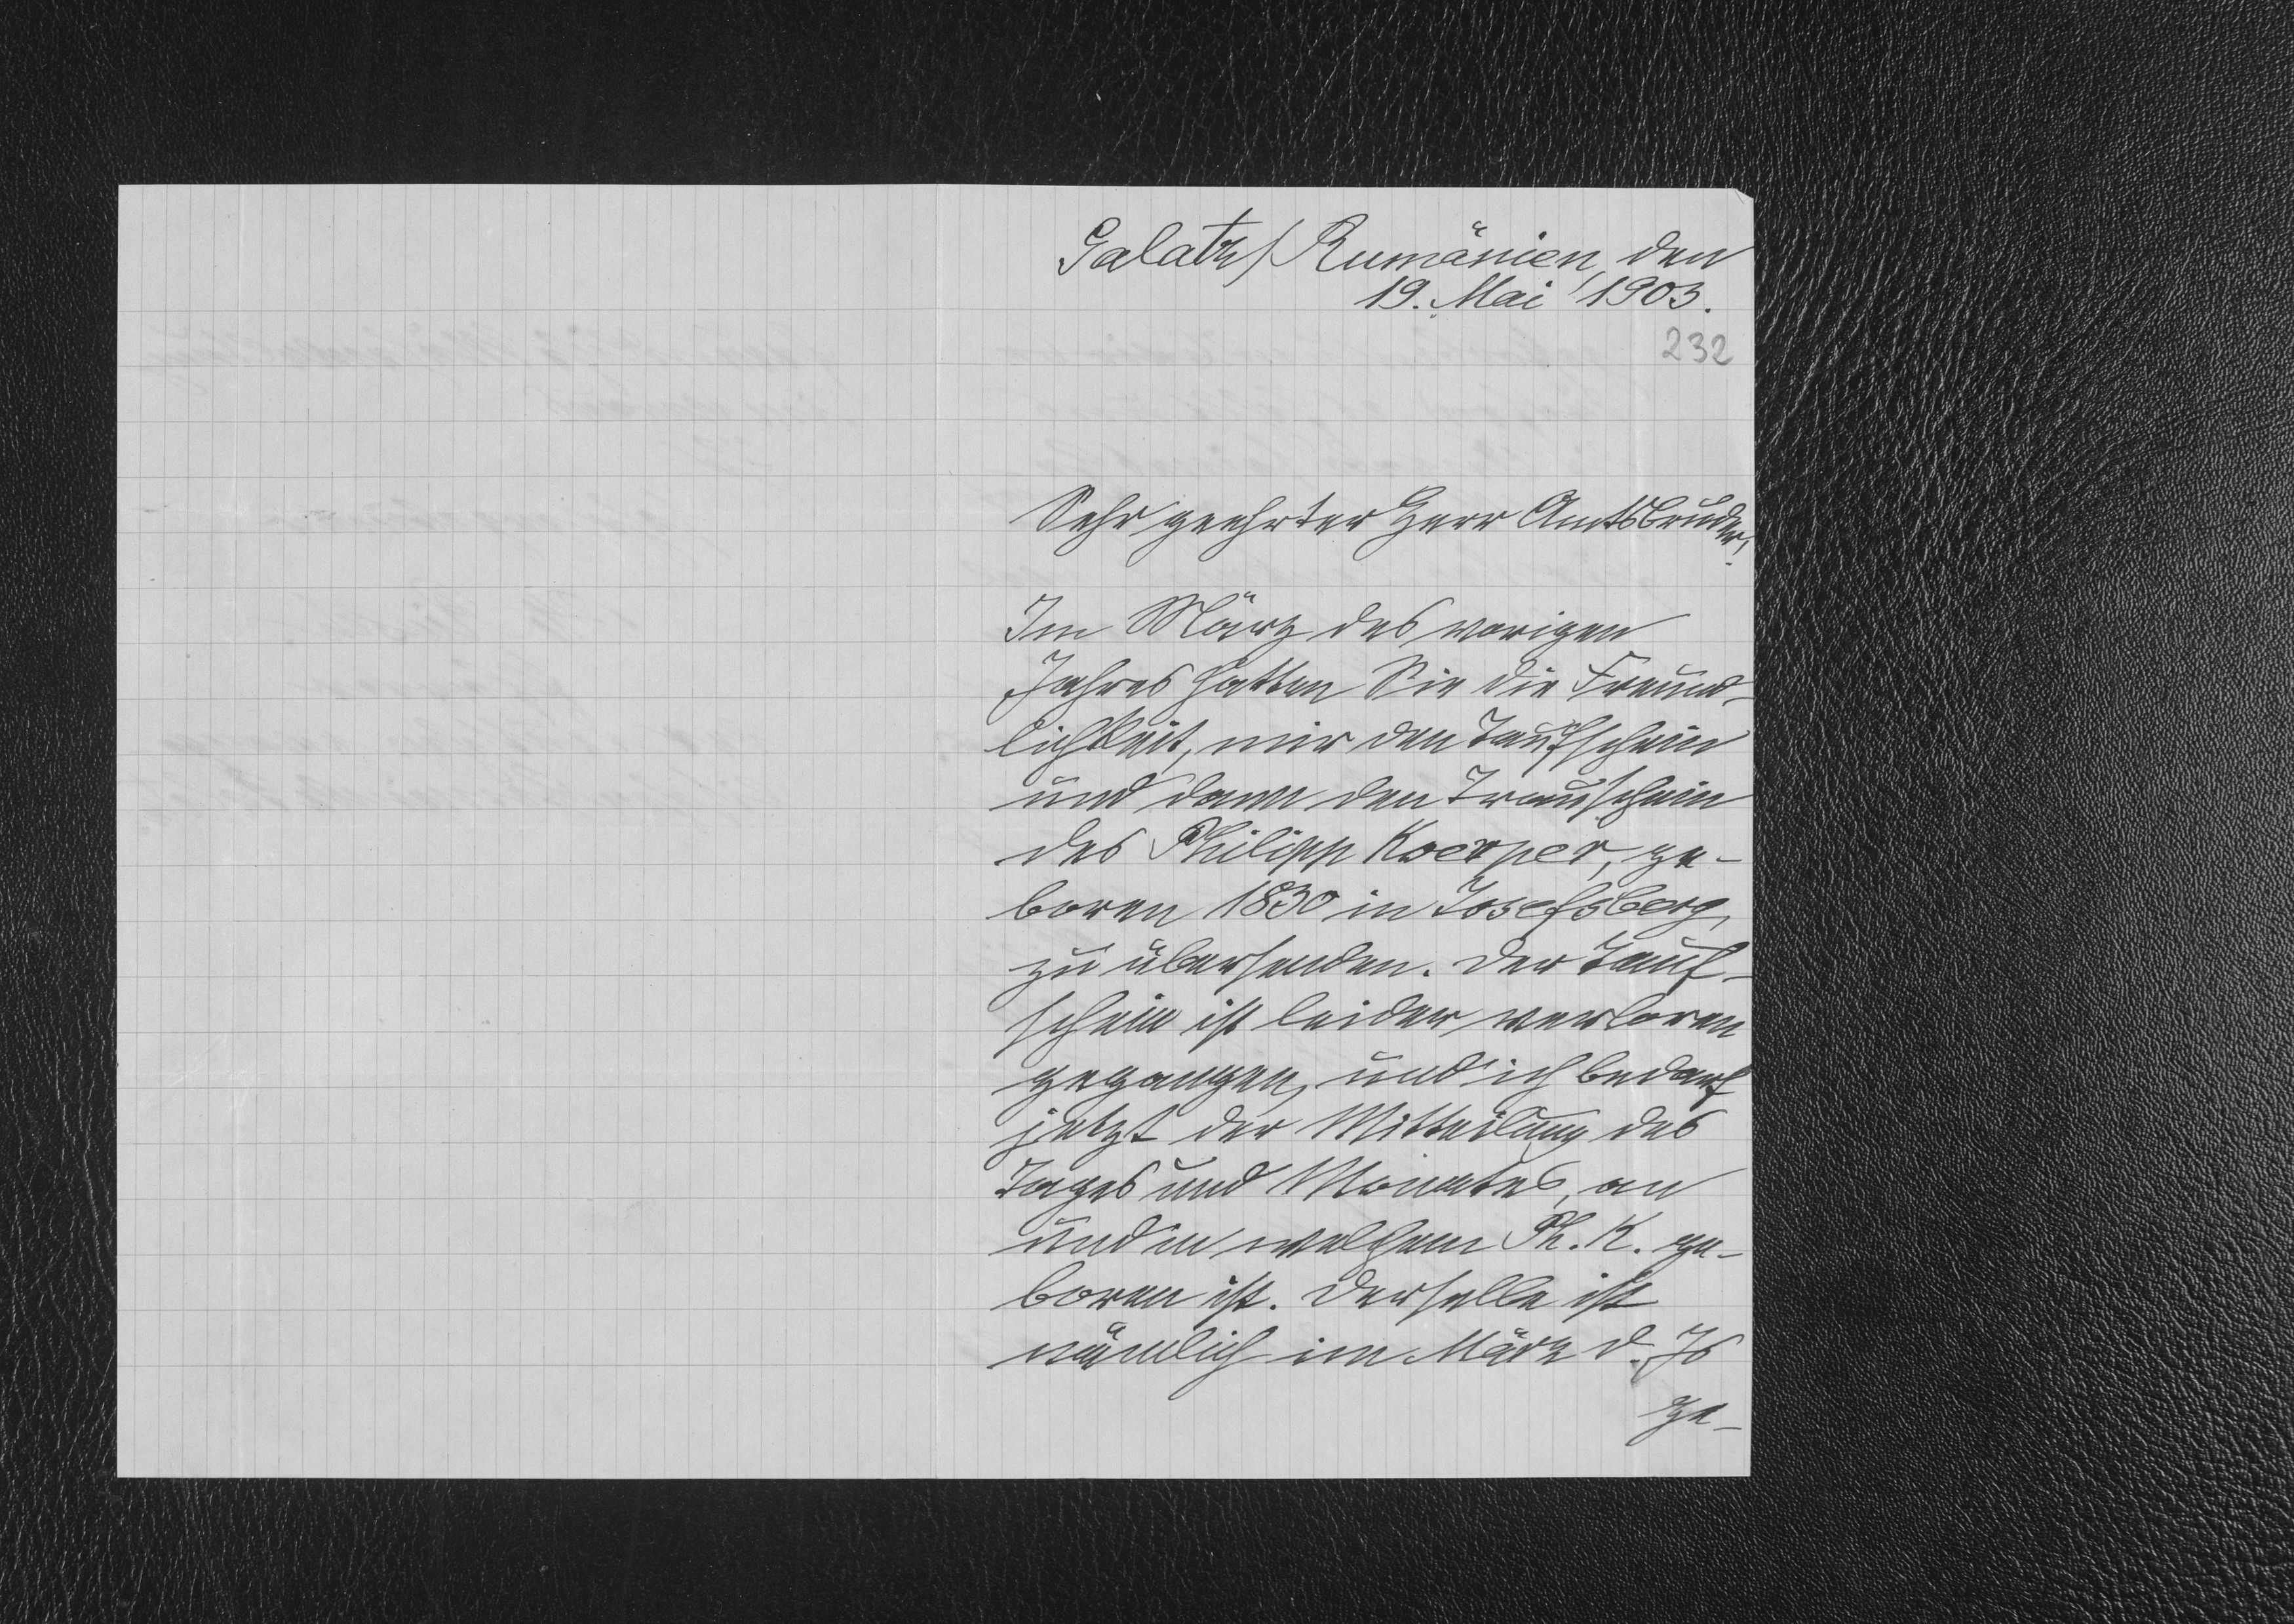 Galatz/Rumänien, den
19. Mai 1903.
232
Sehr geehrter Herr Amtsbruder!
Im März des vorigen
Jahres hatten Sie die Freund-
lichkeit, mir den Taufschein
und dann den Trauschein
des Philipp Koerper, ge-
boren 1830 in Josefsberg,
zu übersenden. Der Tauf-
schein ist leider verloren
gegangen, und ich bedarf
jetzt der Mitteilung des
Tages und Monates, an
und in welchem Ph. K. ge-
boren ist. Derselbe ist
nämlich im März d. Js
ge-